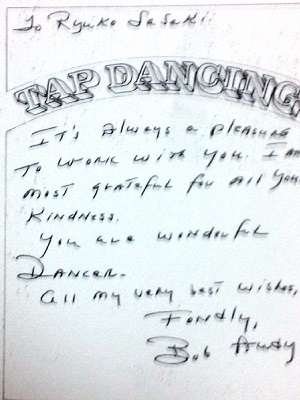 To Ryuko Sasaki
TAP DANCING
It's always a pleasure
to work with you. I am
most grateful for all your
kindness.
You are wonderful
Dancer.
All my very best wishes,
Fondly,
Bob Audy